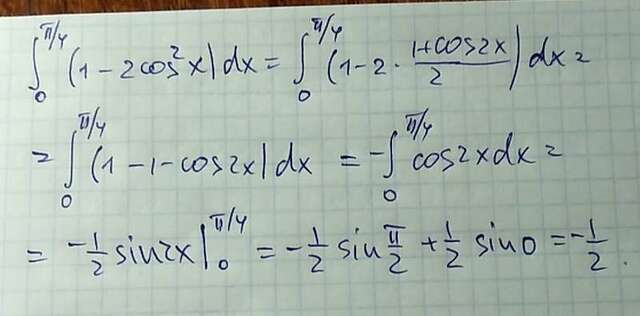 ∫₀^(π/4) (1 - 2cos²x) dx = ∫₀^(π/4) (1 - 2 · (1+cos2x)/2) dx =
= ∫₀^(π/4) (1 - 1 - cos2x) dx = -∫₀^(π/4) cos2x dx =
= -1/2 sin2x |₀^(π/4) = -1/2 sin π/2 + 1/2 sin 0 = -1/2.